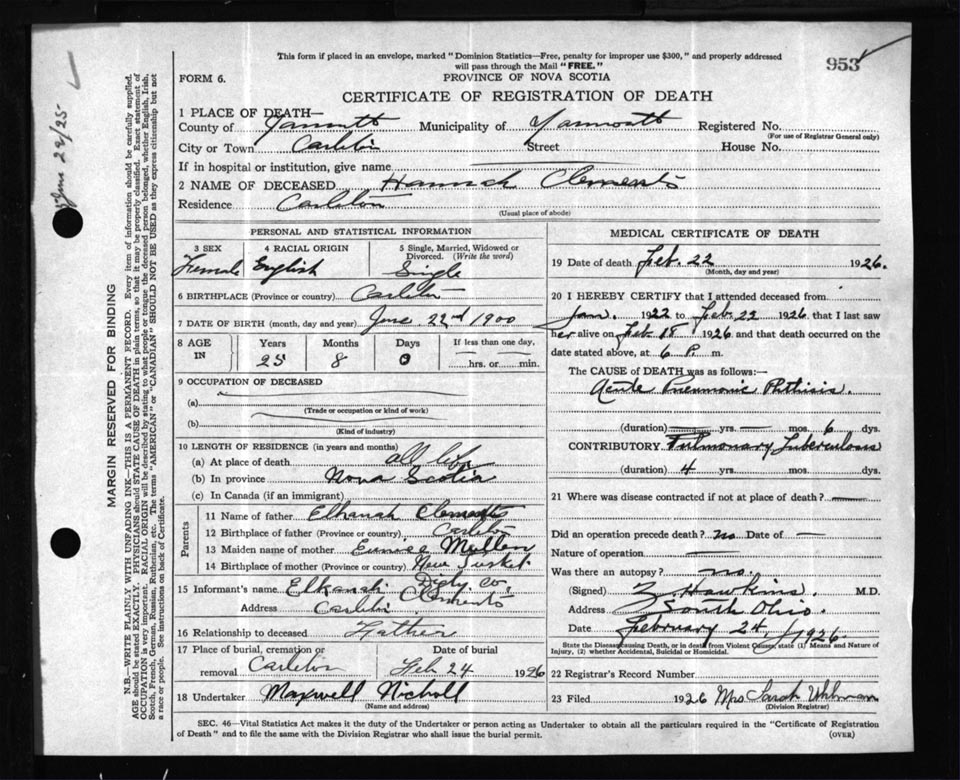 This form if placed in an envelope, marked "Dominion Statistics—Free, penalty for improper use $300," and properly addressed
will pass through the Mail "FREE."
953
FORM 6.
PROVINCE OF NOVA SCOTIA
CERTIFICATE OF REGISTRATION OF DEATH
1 PLACE OF DEATH—
County of Yarmouth Municipality of Yarmouth Registered No.
(For use of Registrar General only)
City or Town Carleton Street House No.
If in hospital or institution, give name
2 NAME OF DECEASED Hannah Clements
Residence Carleton
(Usual place of abode)
PERSONAL AND STATISTICAL INFORMATION
3 SEX 4 RACIAL ORIGIN 5 Single, Married, Widowed or
Divorced. (Write the word)
Female English Single
6 BIRTHPLACE (Province or country) Carleton
7 DATE OF BIRTH (month, day and year) June 22nd 1900
8 AGE Years Months Days If less than one day,
IN 25 8 0 hrs. or min.
9 OCCUPATION OF DECEASED
(a)
(Trade or occupation or kind of work)
(b)
(Kind of industry)
10 LENGTH OF RESIDENCE (in years and months)
(a) At place of death all life
(b) In province Nova Scotia
(c) In Canada (if an immigrant)
Parents
11 Name of father Elkanah Clements
12 Birthplace of father (Province or country) Carleton
13 Maiden name of mother Eunice Mullen
14 Birthplace of mother (Province or country) New Tusket
Digby Co.
15 Informant's name Elkanah Clements
Address Carleton
16 Relationship to deceased Father
17 Place of burial, cremation or Date of burial
removal Carleton Feb 24 1926
18 Undertaker Maxwell Nicholl
(Name and address)
MEDICAL CERTIFICATE OF DEATH
19 Date of death Feb. 22 1926.
(Month, day and year)
20 I HEREBY CERTIFY that I attended deceased from
Jan. 1922 to Feb. 22 1926 that I last saw
her alive on Feb 18 1926 and that death occurred on the
date stated above, at 6 P. m.
The CAUSE of DEATH was as follows:—
Acute Pneumonic Phthisis.
(duration) yrs. mos. 6 dys.
CONTRIBUTORY Pulmonary Tuberculous
(duration) 4 yrs. mos. dys.
21 Where was disease contracted if not at place of death?
Did an operation precede death? no Date of —
Nature of operation —
Was there an autopsy? no.
(Signed) Z Hawkins. M.D.
Address South Ohio.
Date February 24, 1926.
State the Disease causing Death, or in death from Violent Causes, state (1) Means and Nature of
Injury, (2) whether Accidental, Suicidal or Homicidal.
22 Registrar's Record Number
23 Filed 1926 Mrs Sarah Uhlman
(Division Registrar)
SEC. 46—Vital Statistics Act makes it the duty of the Undertaker or person acting as Undertaker to obtain all the particulars required in the "Certificate of Registration
of Death" and to file the same with the Division Registrar who shall issue the burial permit.
(OVER)
June 22/25
MARGIN RESERVED FOR BINDING
N.B.—WRITE PLAINLY WITH UNFADING INK—THIS IS A PERMANENT RECORD. Every item of information should be carefully supplied.
AGE should be stated EXACTLY. PHYSICIANS should STATE CAUSE OF DEATH in plain terms, so that it may be properly classified. Exact statement of
OCCUPATION is very important. RACIAL ORIGIN will be described by stating to what people or tongue the deceased person belonged, whether English, Irish,
Scotch, French, German, Russian, Ruthenian, etc. The terms "AMERICAN" or "CANADIAN" SHOULD NOT BE USED as they express citizenship but not
a race or people. See instructions on back of Certificate.